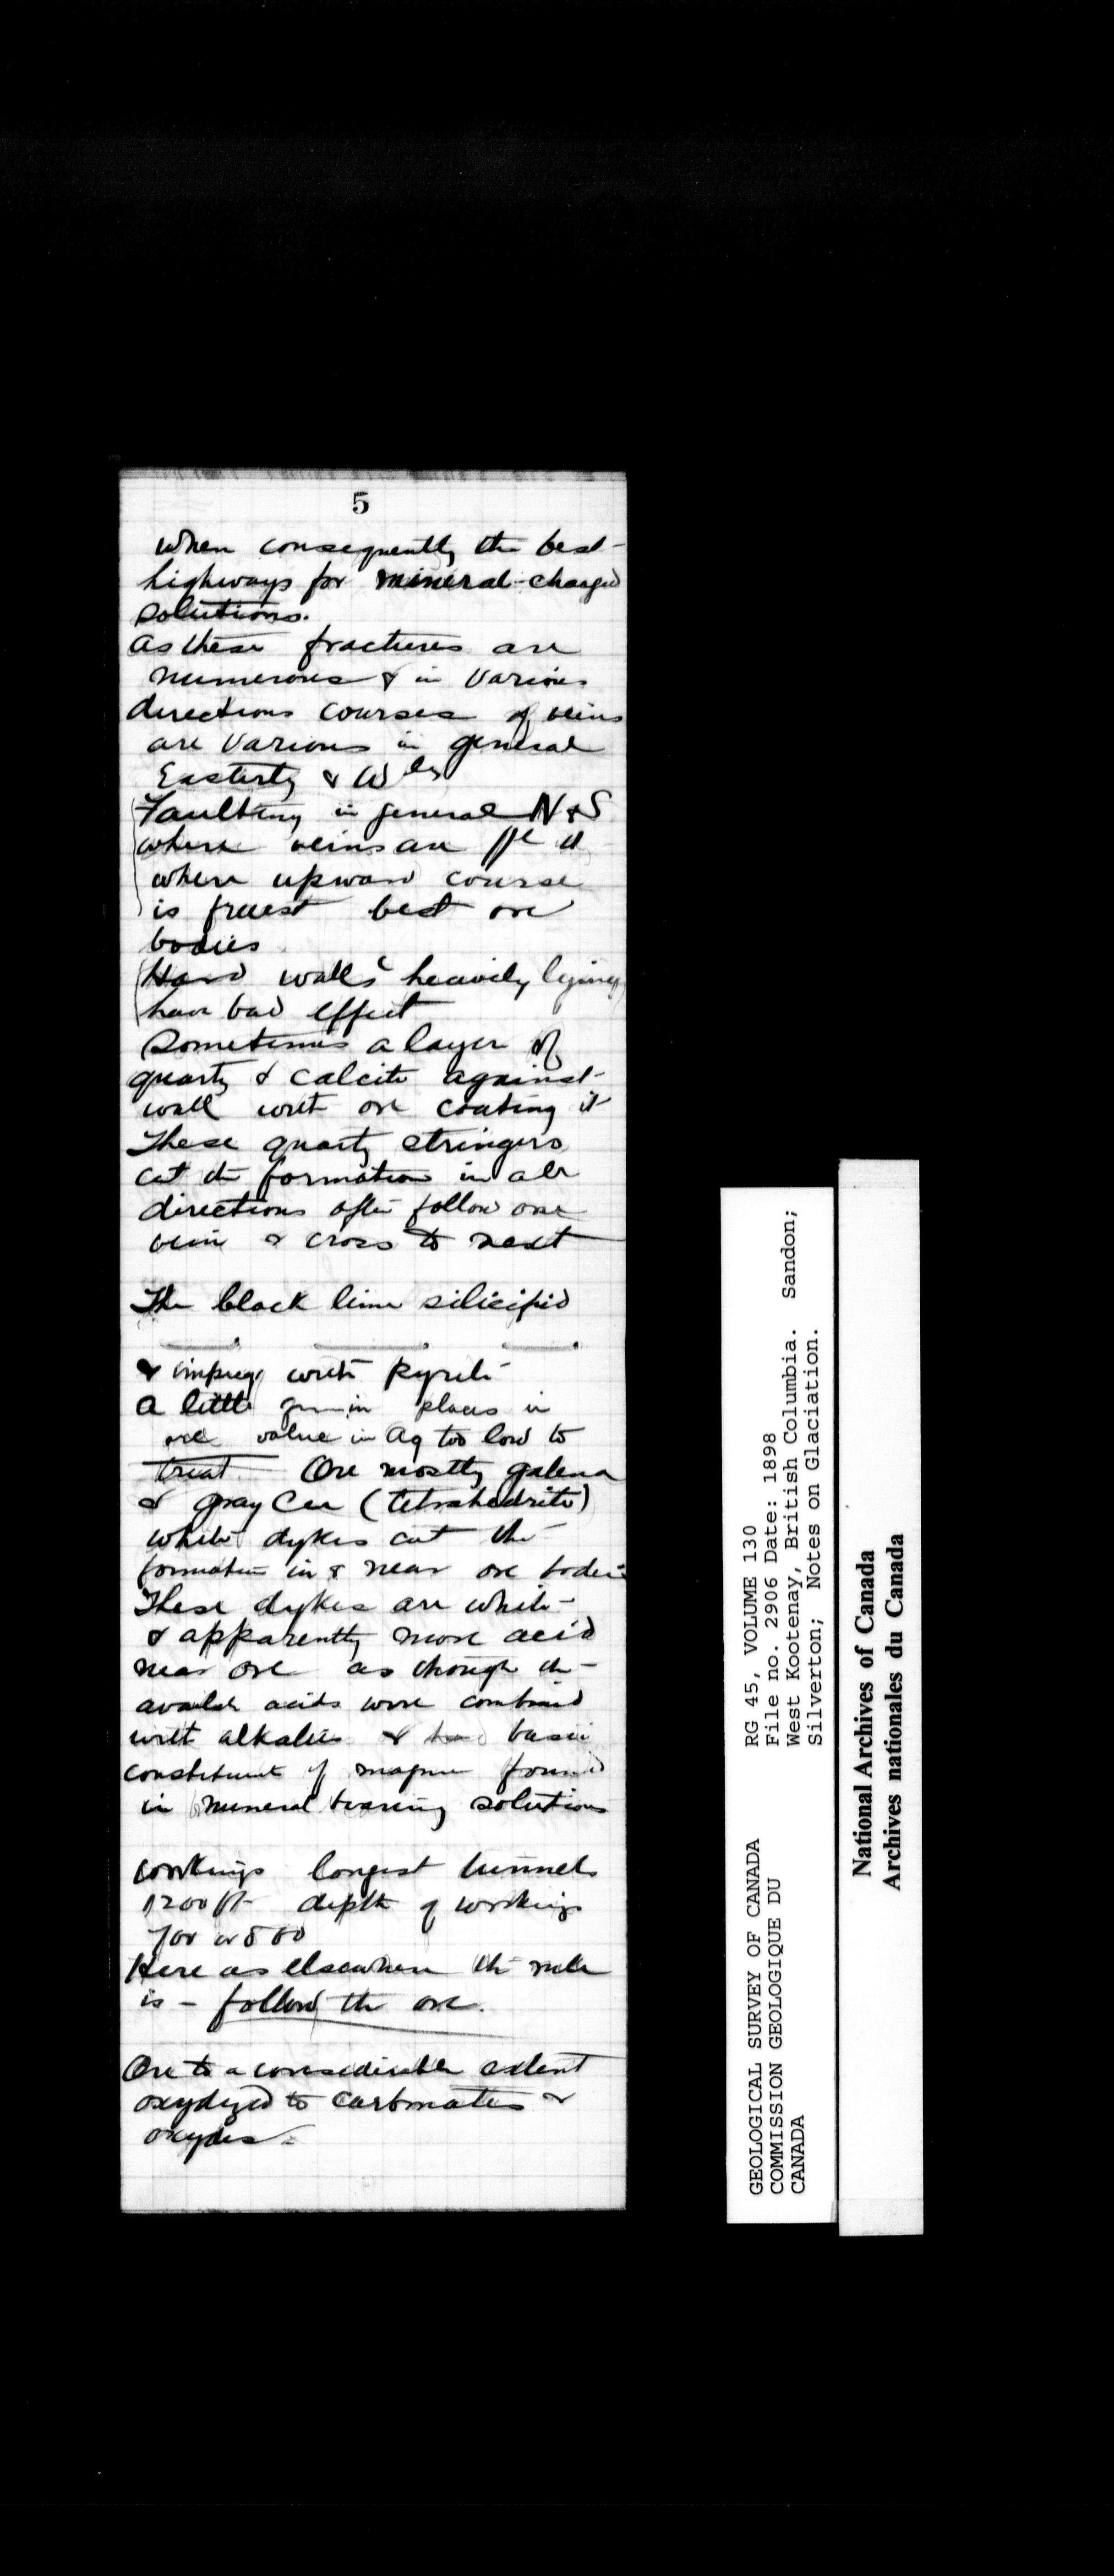 5
When consequently the best
highways for mineral-charged
solutions.
As these fractures are
numerous & in various
directions courses of veins
are various in general
Easterly & Wly
Faulting in general N & S
where veins are
where upward course
is freest best ore
bodies
Hard walls heavily lying
have bad effect
Sometimes a layer of
quartz & calcite against
wall with ore coating it
These quartz stringers
cut the formation in all
directions often follow one
vein & cross to next
The black lime silicified
& impreg with pyrite
A little in places in
value in Ag too low to
treat Ore mostly galena
& gray (tetrahedrite)
White dykes cut the
formation in & near ore bodies
These dykes are white
& apparently more acid
near ore as though the
acids were combined
with alkalies & basic
constituent of magma found
in mineral bearing solutions
Workings longest tunnels
1200 ft depth of workings
700 or 800
Here as elsewhere the rule
is - follow the ore.
Ore to a considerable extent
oxydized to carbonates &
oxydes
GEOLOGICAL SURVEY OF CANADA
COMMISSION GEOLOGIQUE DU
CANADA
RG 45, VOLUME 130
File no. 2906 Date: 1898
West Kootenay, British Columbia. Sandon;
Silverton; Notes on Glaciation.
National Archives of Canada
Archives nationales du Canada